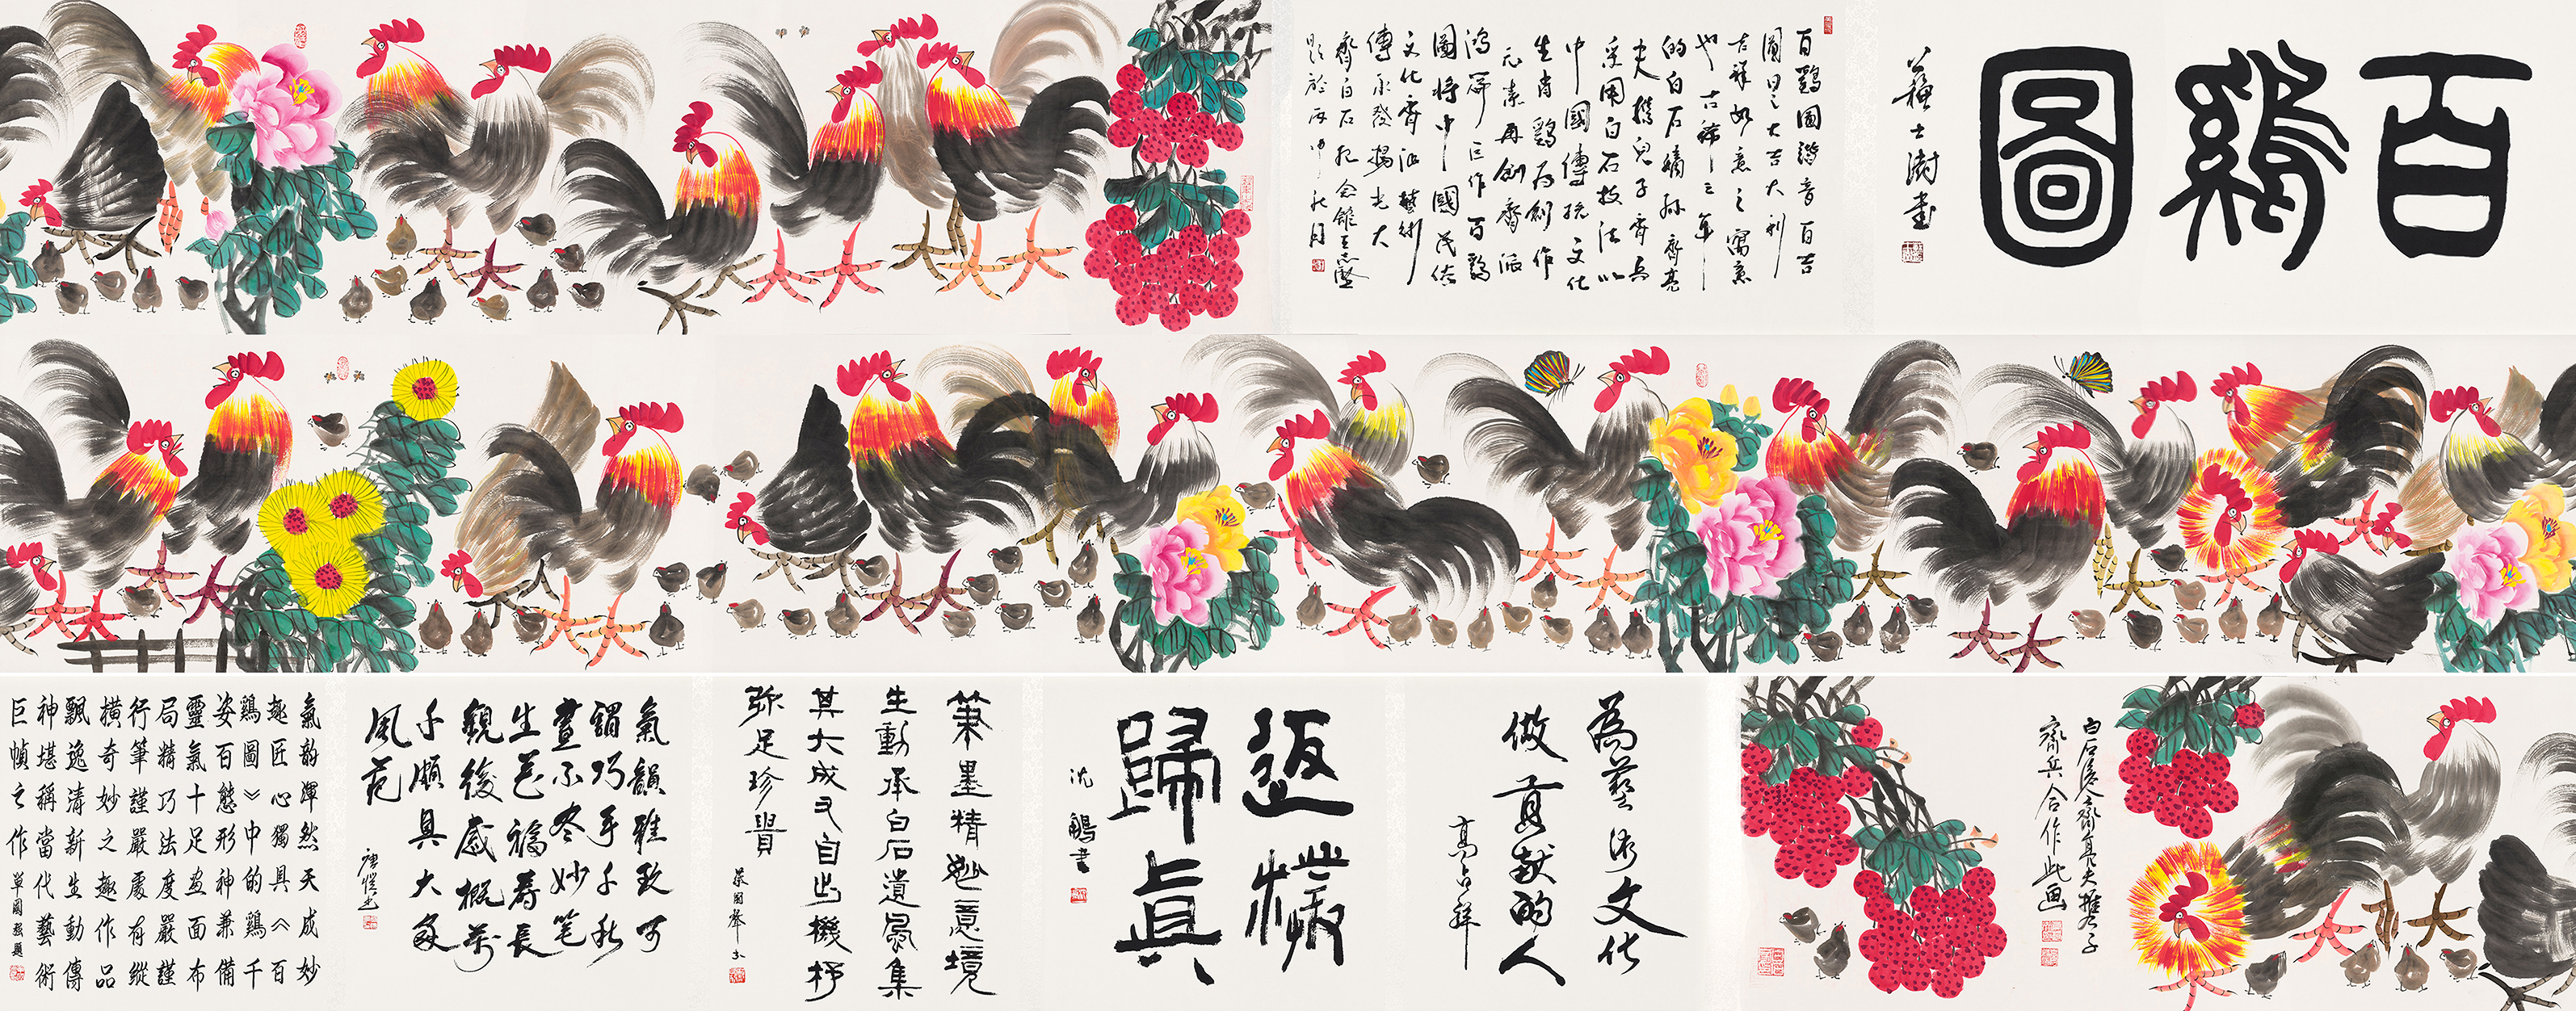 百鷄圖
蘇士澍書
百鷄圖諧音百吉
圖是大吉大利
吉祥如意之寓意
也古稀之年
的白石嫡孫齊亮
夫攜兒子齊兵
采用白石技法以
中國傳統文化
生肖鷄為創作
元素再創齊派
鴻篇巨作百鷄
圖將中國民俗
文化齊派藝術
傳承發揚光大
齊白石紀念館王志堅
題於丙申秋月
白石後人齊亮夫攜子
齊兵合作此画
為藝術文化
做貢獻的人
高占祥
返樸
歸真
沈鵬書
筆墨精妙意境
生動承白石遺風集
其大成又自出機杼
弥足珍貴
氣韻雅致可
謂巧手千秋
畫不冬妙笔
生花福壽長
觀後感概万
千頗具大家
風范
唐愷書
氣韵渾然天成妙
趣匠心獨具《百
鷄圖》中的鷄千
姿百態形神兼備
靈氣十足畫面布
局精巧法度嚴謹
行筆謹嚴處有縱
橫奇妙之趣作品
飄逸清新生動傳
神堪稱當代藝術
巨幀之作
單國強題